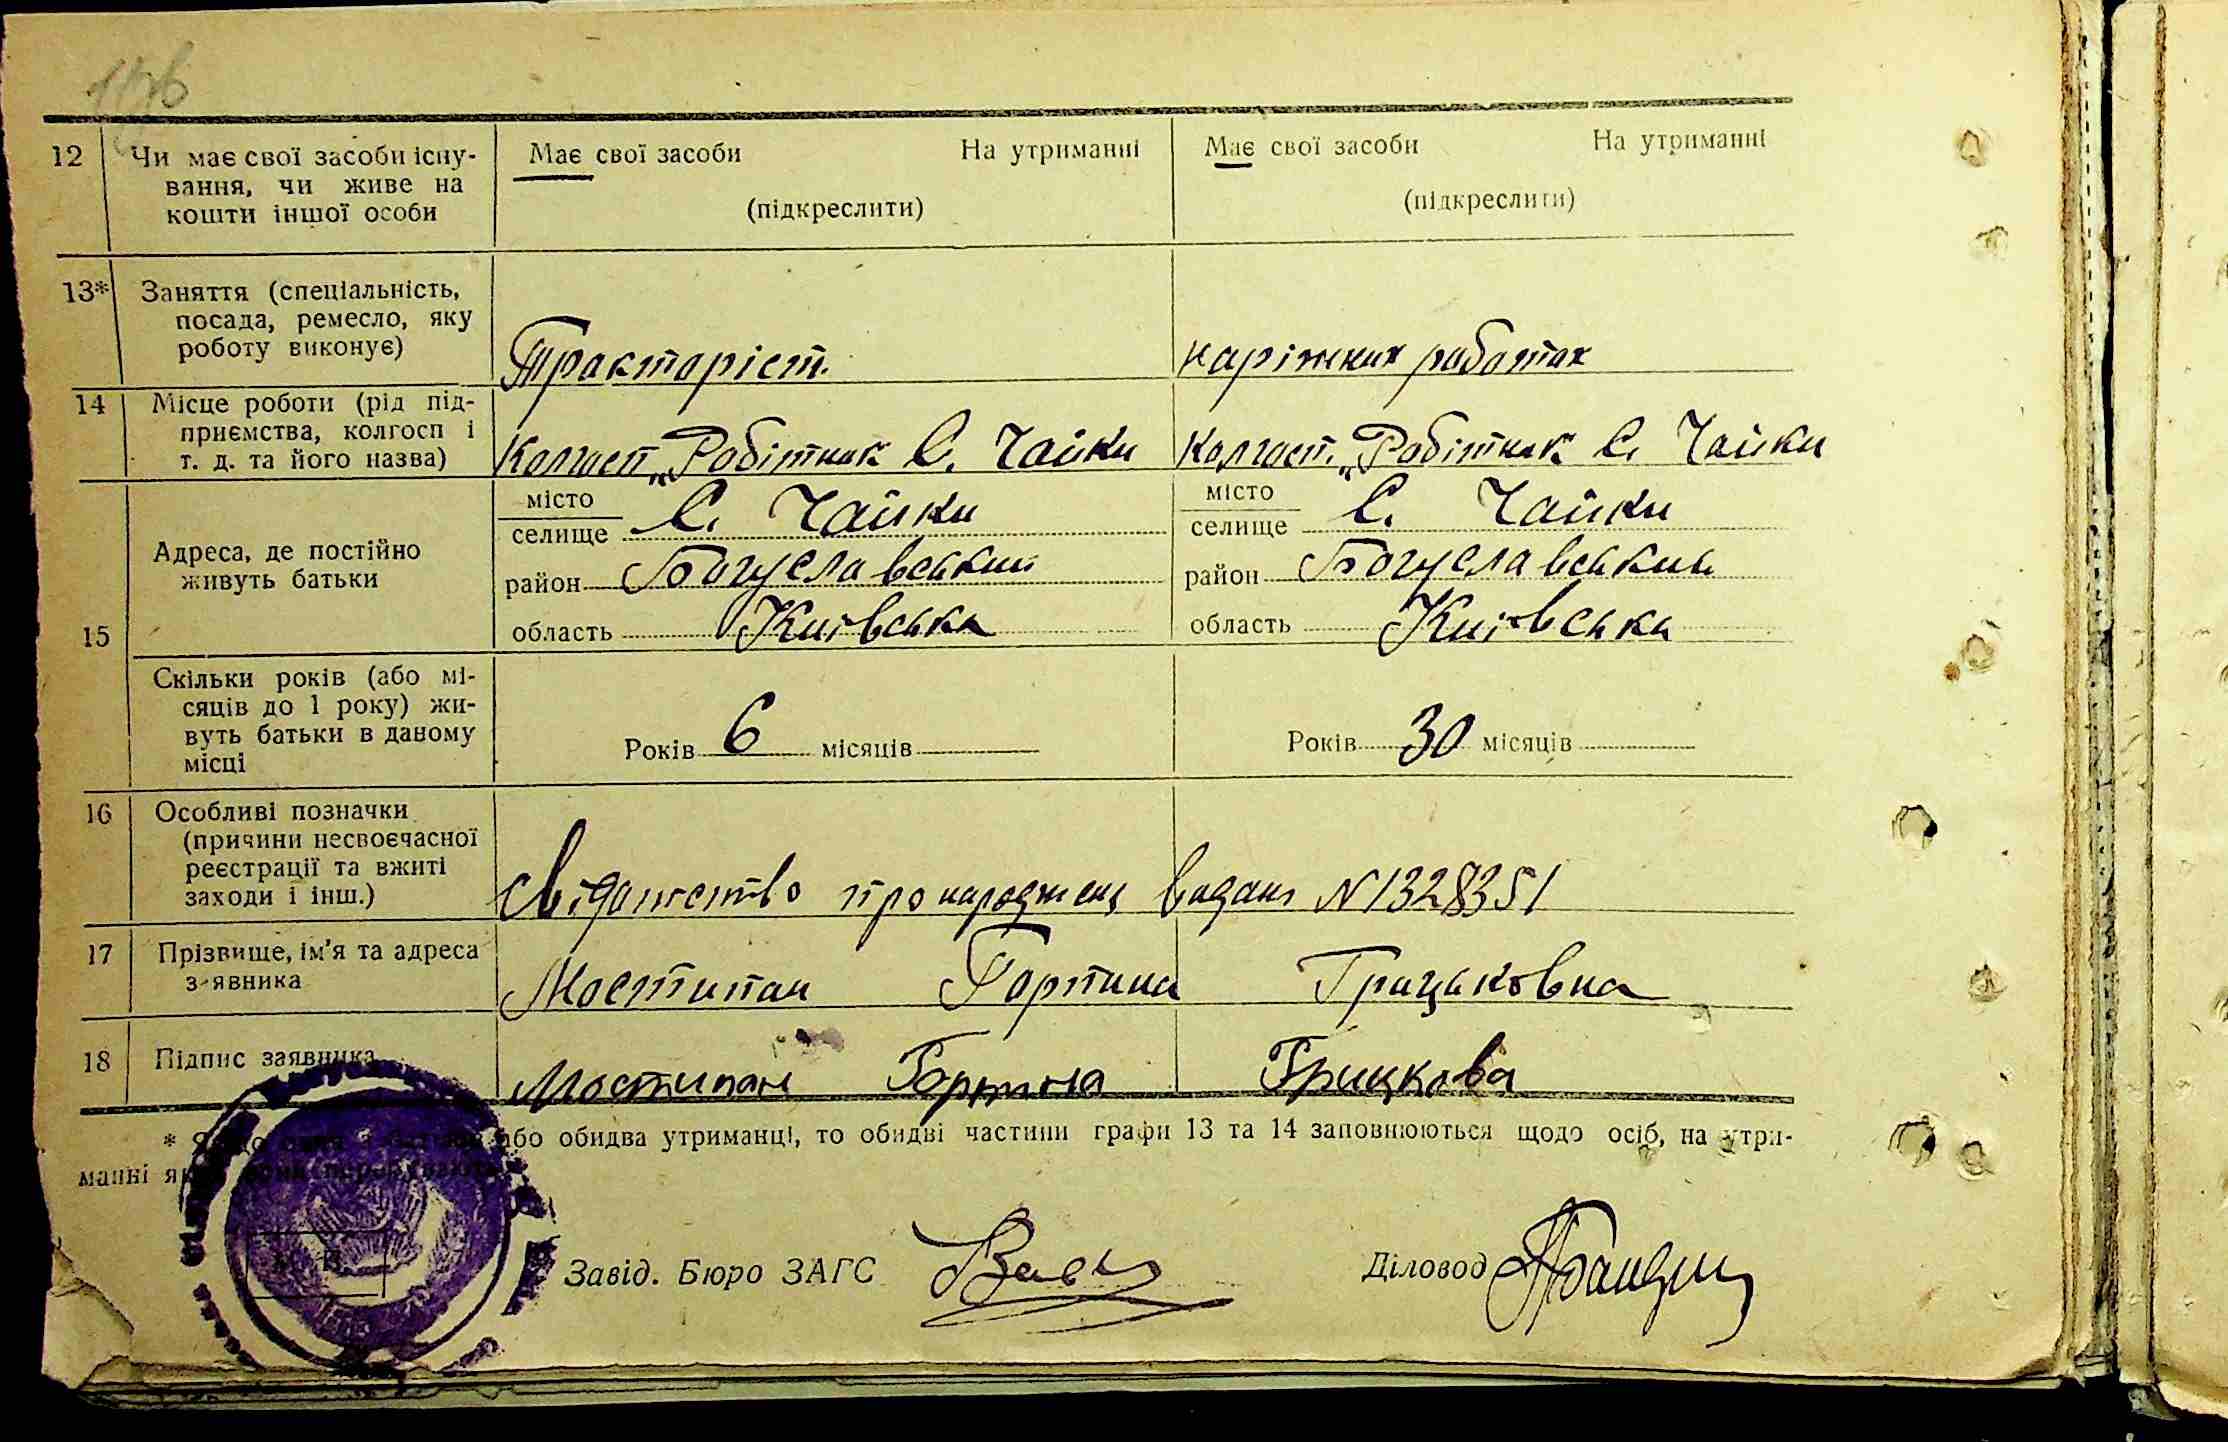 12 Чи має свої засоби існу-
вання, чи живе на
кошти іншої особи
Має свої засоби На утриманні
(підкреслити)
Має свої засоби На утриманні
(підкреслити)
13* Заняття (спеціальність,
посада, ремесло, яку
роботу виконує)
Тракторіст.
на ріжних роботах
14 Місце роботи (рід під-
приємства, колгосп і
т. д. та його назва)
Колгосп „Робітник С. Чайки
Колгосп. „Робітник С. Чайки
15 Адреса, де постійно
живуть батьки
місто
селище С. Чайки
район Богуславський
область Київська
місто
селище С. Чайки
район Богуславський
область Київська
Скільки років (або мі-
сяців до 1 року) жи-
вуть батьки в даному
місці
Років 6 місяців
Років 30 місяців
16 Особливі позначки
(причини несвоєчасної
реєстрації та вжиті
заходи і інш.)
Свідоцтво про народжень видано N 1328351
17 Прізвище, ім'я та адреса
з'явника
Мостипан Гортина Грицьковна
18 Підпис заявника
Мостипан Гортина Грицкова
* або обидва утриманці, то обидві частини графи 13 та 14 заповнюються щодо осіб, на утри-
манні
Завід. Бюро ЗАГС
Діловод